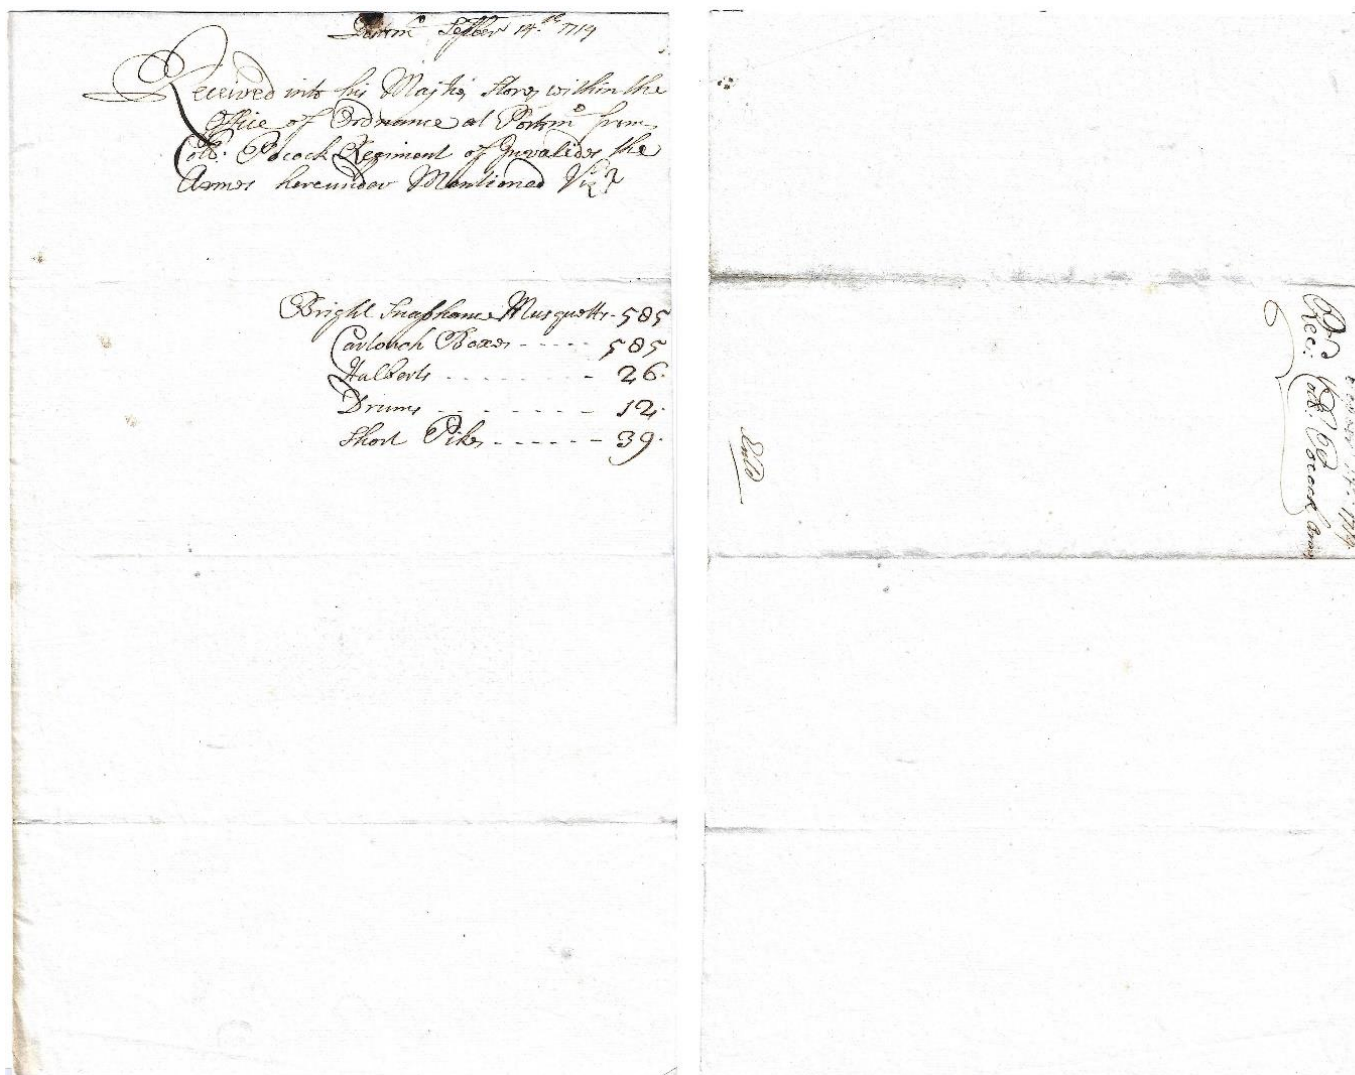 Portsmo Septber 14.th 1719
Received into his Majties Stores within the
Office of Ordnance at Portsmo from
Collo. Pocock Regiment of Invalides the
Armes hereunder Mentioned Vizt
Bright Snaphance Musquetts - 585
Cartouch Boxes - - - - - 585
Halberts - - - - - - - - 26.
Drums - - - - - - - - 12.
Short Pikes - - - - - - 39.
14. 1719
Collo. Pocock Armes
Entd